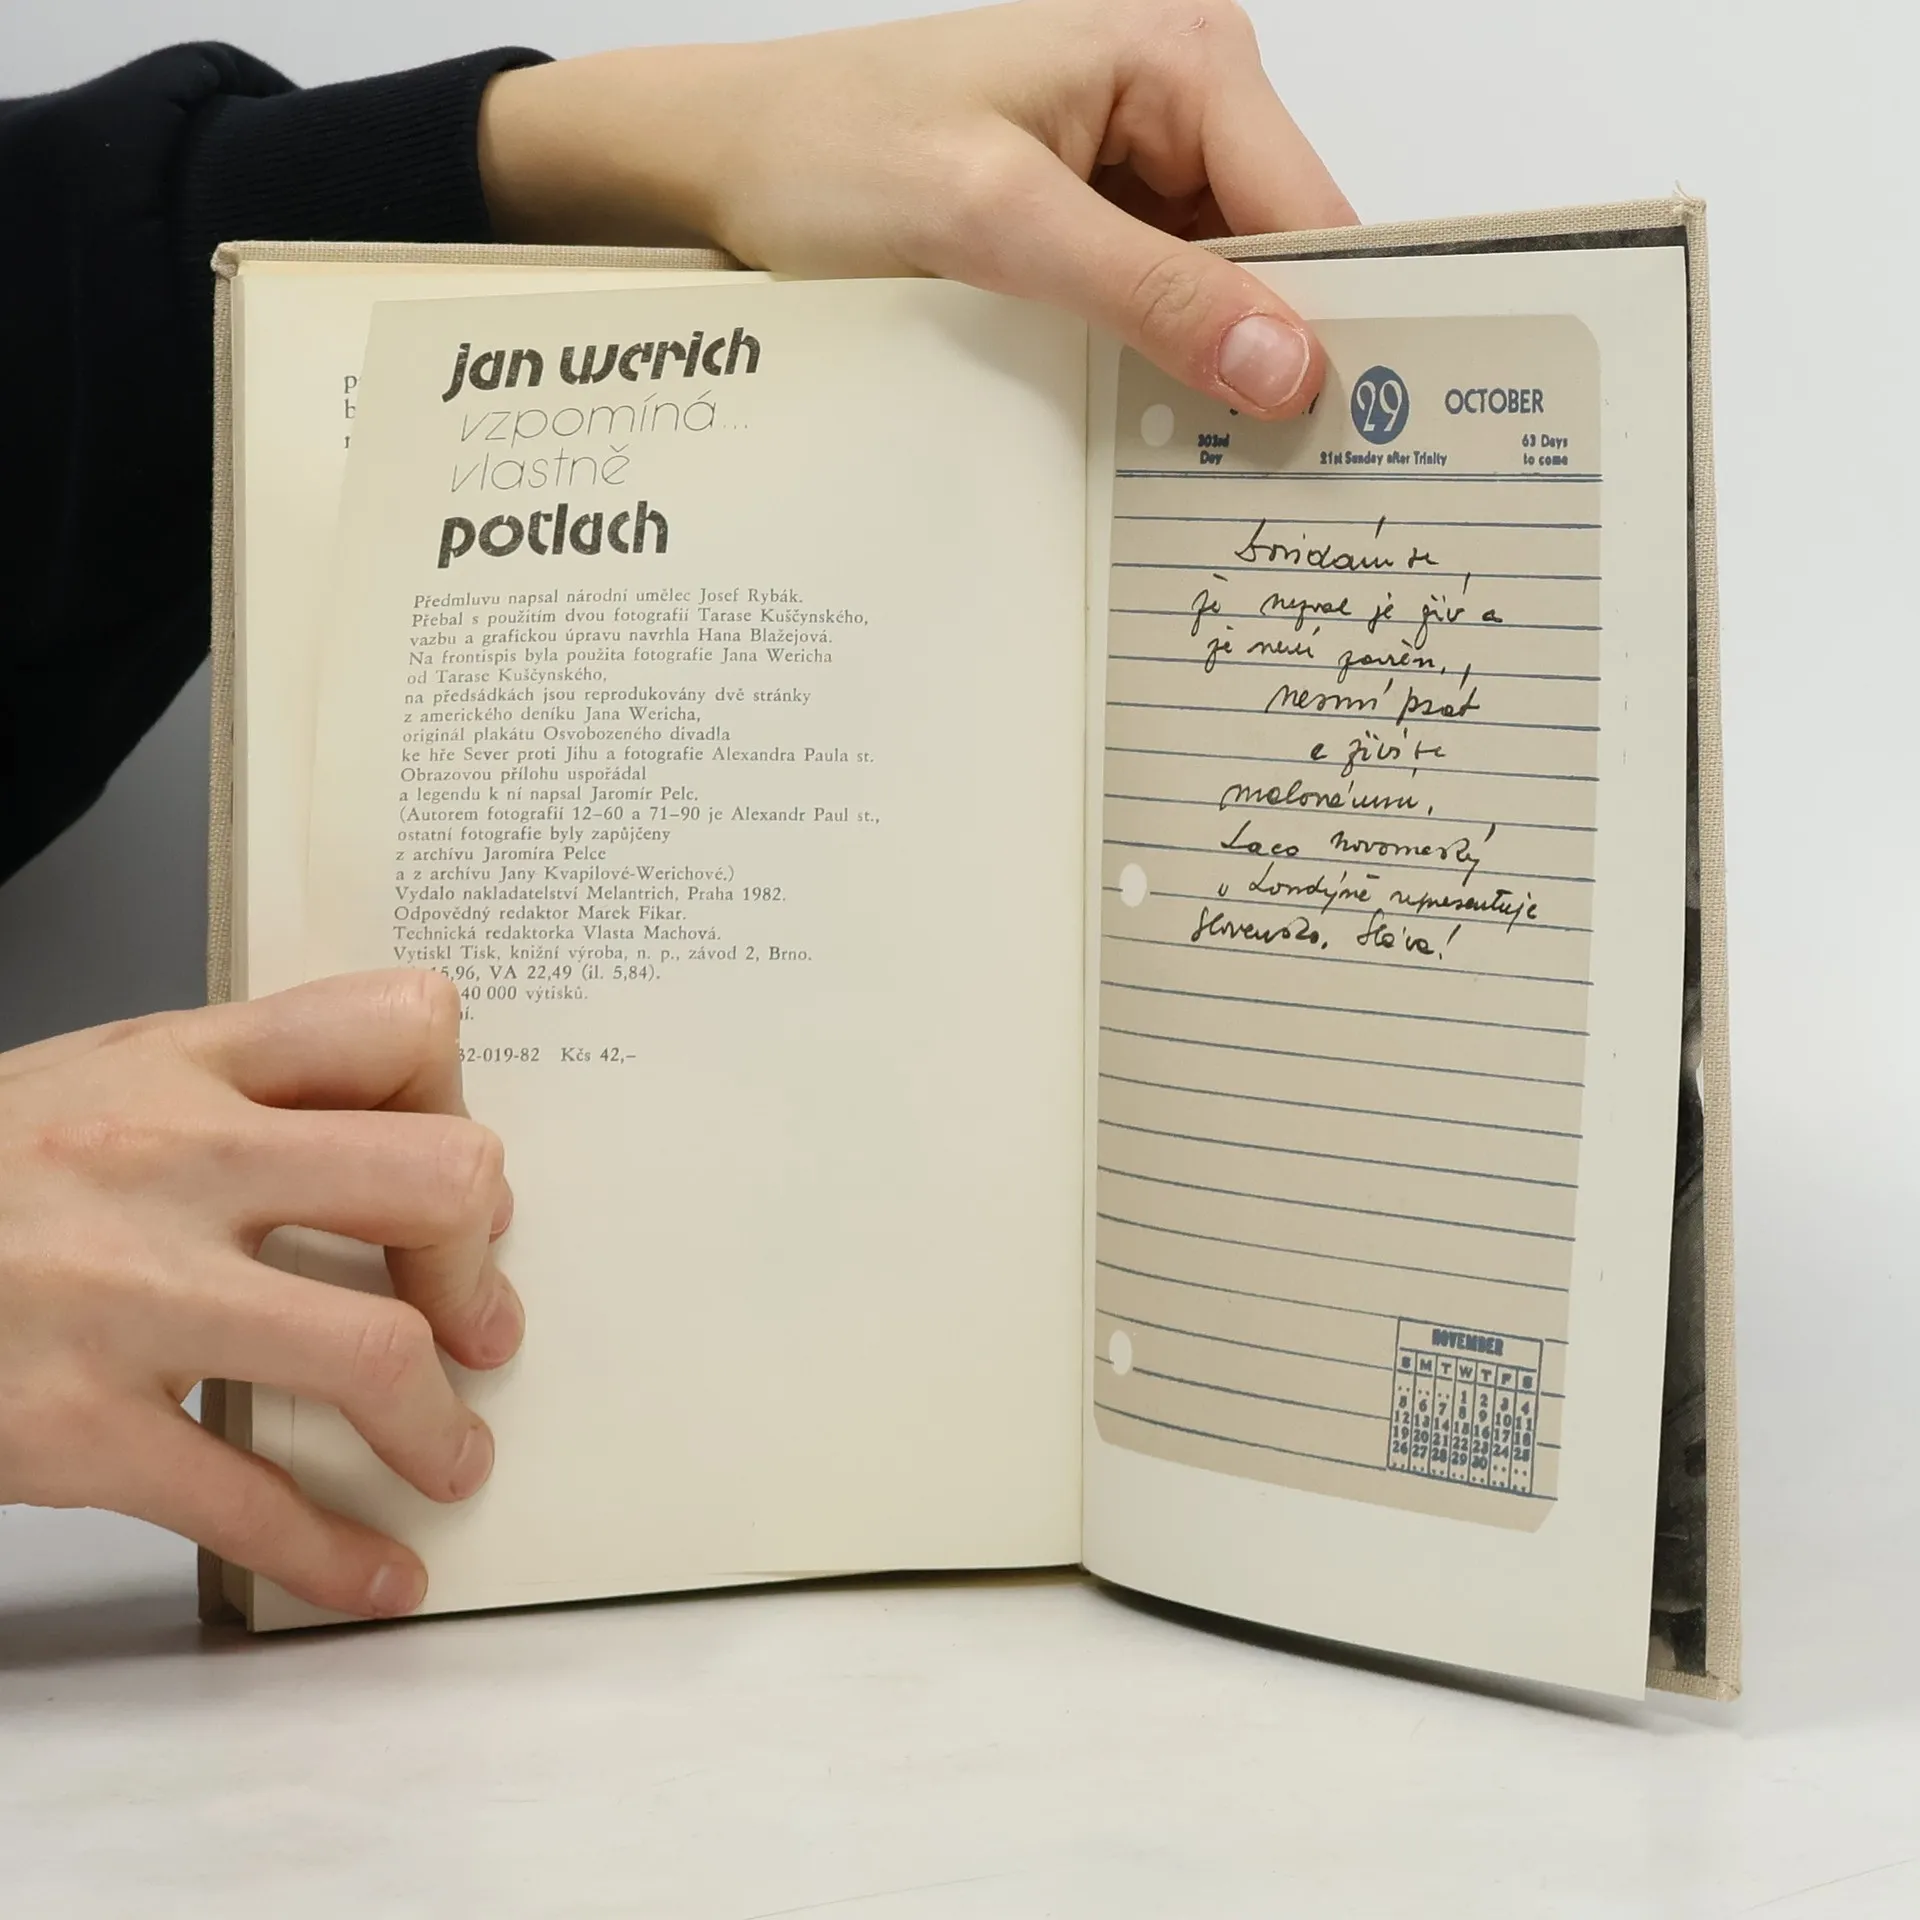 jan werich
vzpomíná...
vlastně
potlach
Předmluvu napsal národní umělec Josef Rybák.
Přebal s použitím dvou fotografií Tarase Kuščynského,
vazbu a grafickou úpravu navrhla Hana Blažejová.
Na frontispis byla použita fotografie Jana Wericha
od Tarase Kuščynského,
na předsádkách jsou reprodukovány dvě stránky
z amerického deníku Jana Wericha,
originál plakátu Osvobozeného divadla
ke hře Sever proti Jihu a fotografie Alexandra Paula st.
Obrazovou přílohu uspořádal
a legendu k ní napsal Jaromír Pelc.
(Autorem fotografií 12–60 a 71–90 je Alexandr Paul st.,
ostatní fotografie byly zapůjčeny
z archívu Jaromíra Pelce
a z archívu Jany Kvapilové-Werichové.)
Vydalo nakladatelství Melantrich, Praha 1982.
Odpovědný redaktor Marek Fikar.
Technická redaktorka Vlasta Machová.
Vytiskl Tisk, knižní výroba, n. p., závod 2, Brno.
5,96, VA 22,49 (il. 5,84).
40 000 výtisků.
32-019-82 Kčs 42,–
29 OCTOBER
303rd 63 Days
Day 21st Sunday after Trinity to come
Dovídám se,
že nezval je živ a
že není zavřen,
nesmí psát
a živí se
malováním.
Laco Novomeský
v Londýně representuje
Slovensko. Sláva!
NOVEMBER
S M T W T F S
.. .. .. 1 2 3 4
5 6 7 8 9 10 11
12 13 14 15 16 17 18
19 20 21 22 23 24 25
26 27 28 29 30 .. ..